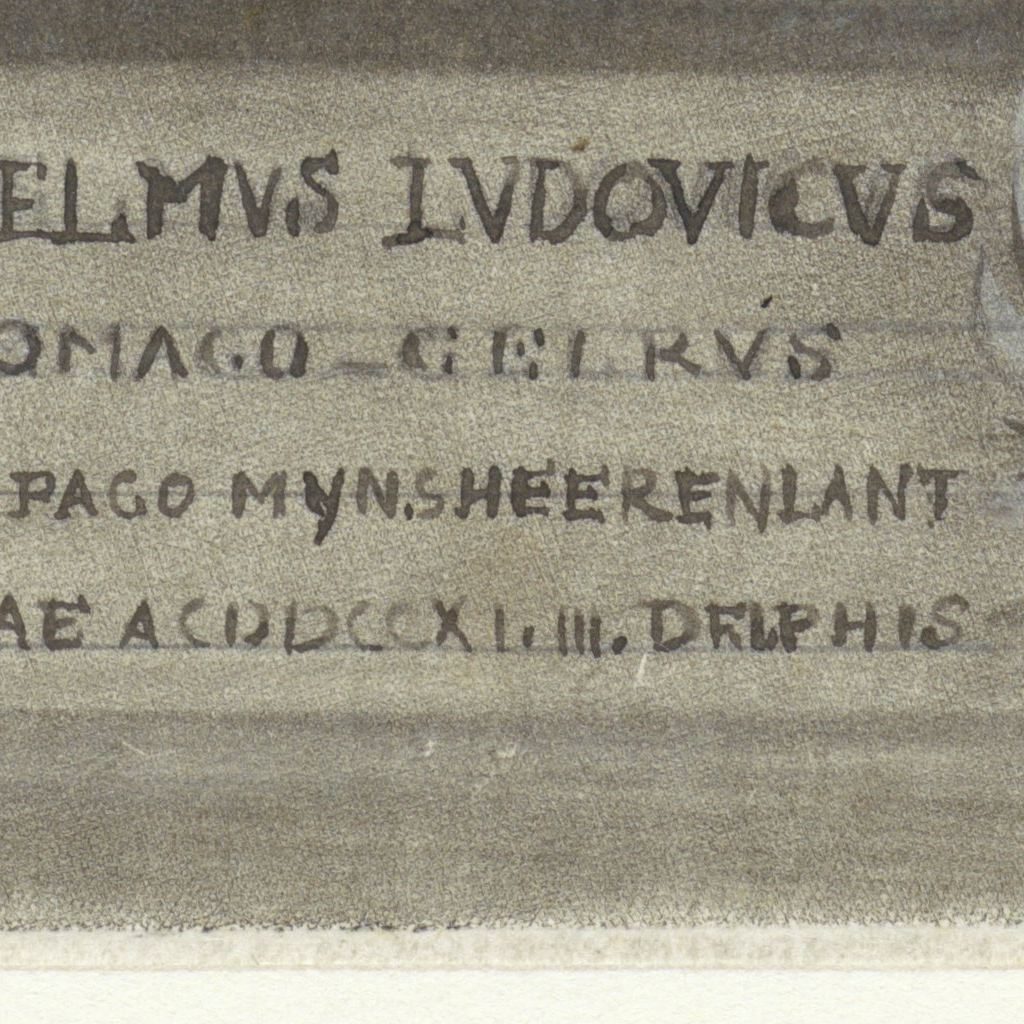 ELMVS LVDOVICVS
OMAGO-GELRVS
PAGO MYNSHEERENLANT
AE A CIƆDCCXLIII. DELPHIS